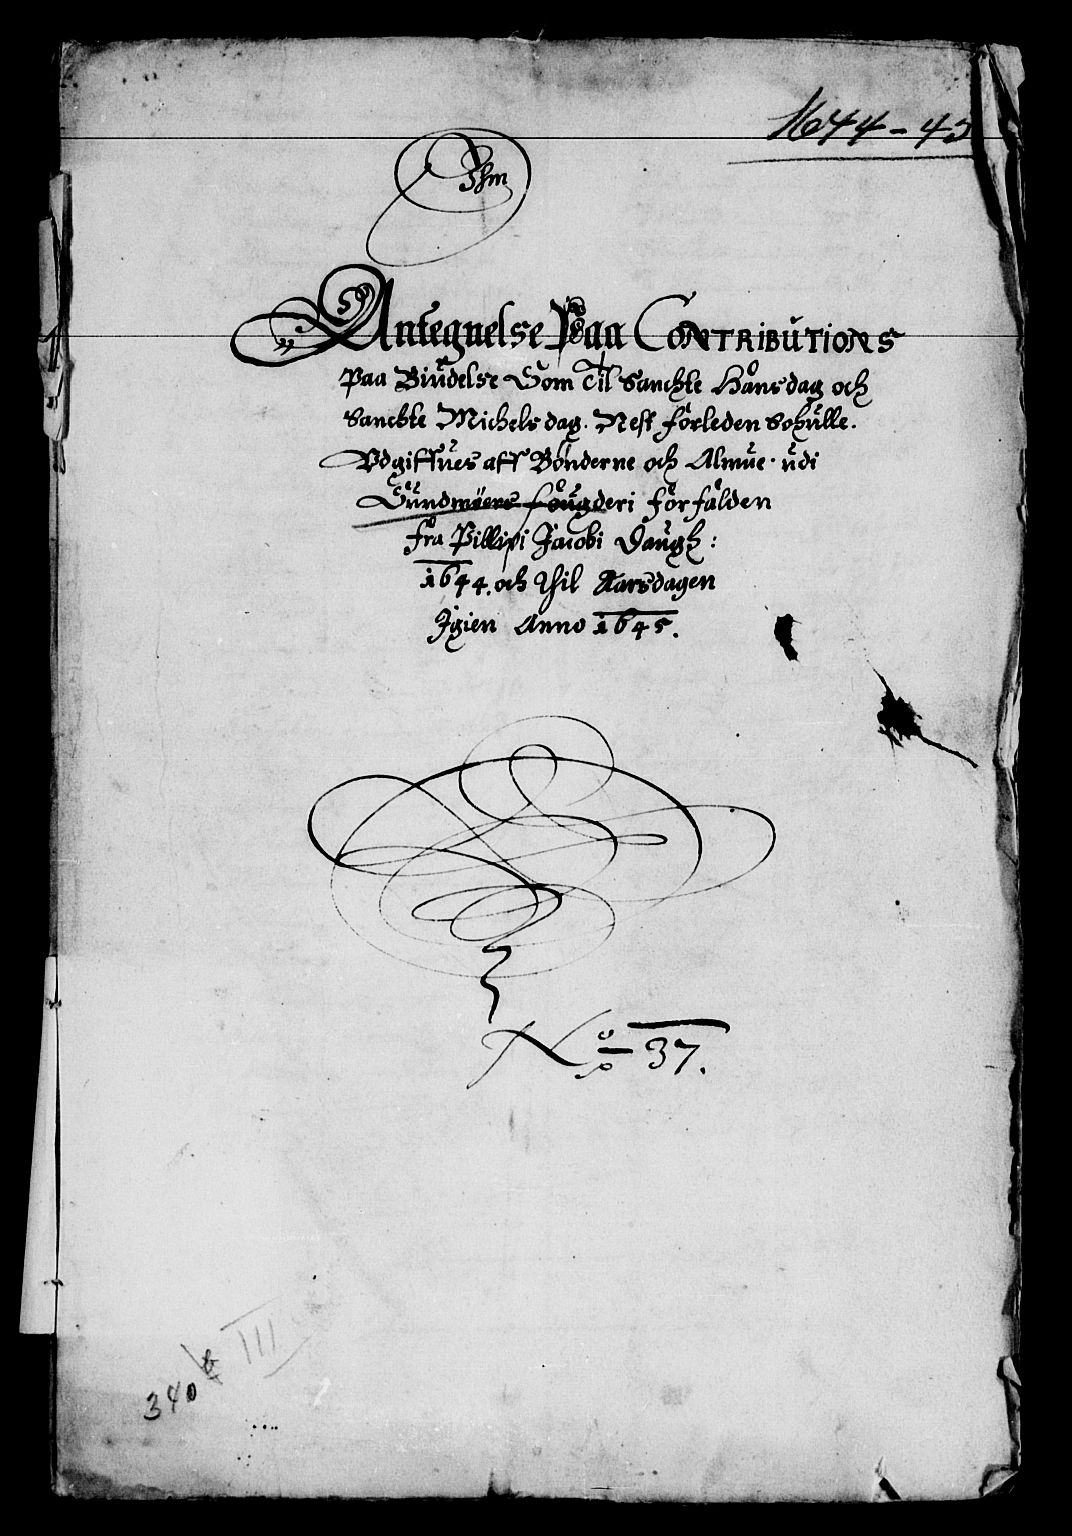 1644-45
Antegnelse Paa Contributions
Paa Biudelse Som Til Sanckte Hans dag och
Sanckte Michels dag. Nest forleden Schulle.
Vdgiffues aff Bønderne och Almue udi
Sundmøers fougderi forfalden
fra Pillipi Jacobi Daugh:
1644. och thil Aarsdagen
Igien Anno 1645.
No 37.
III
340